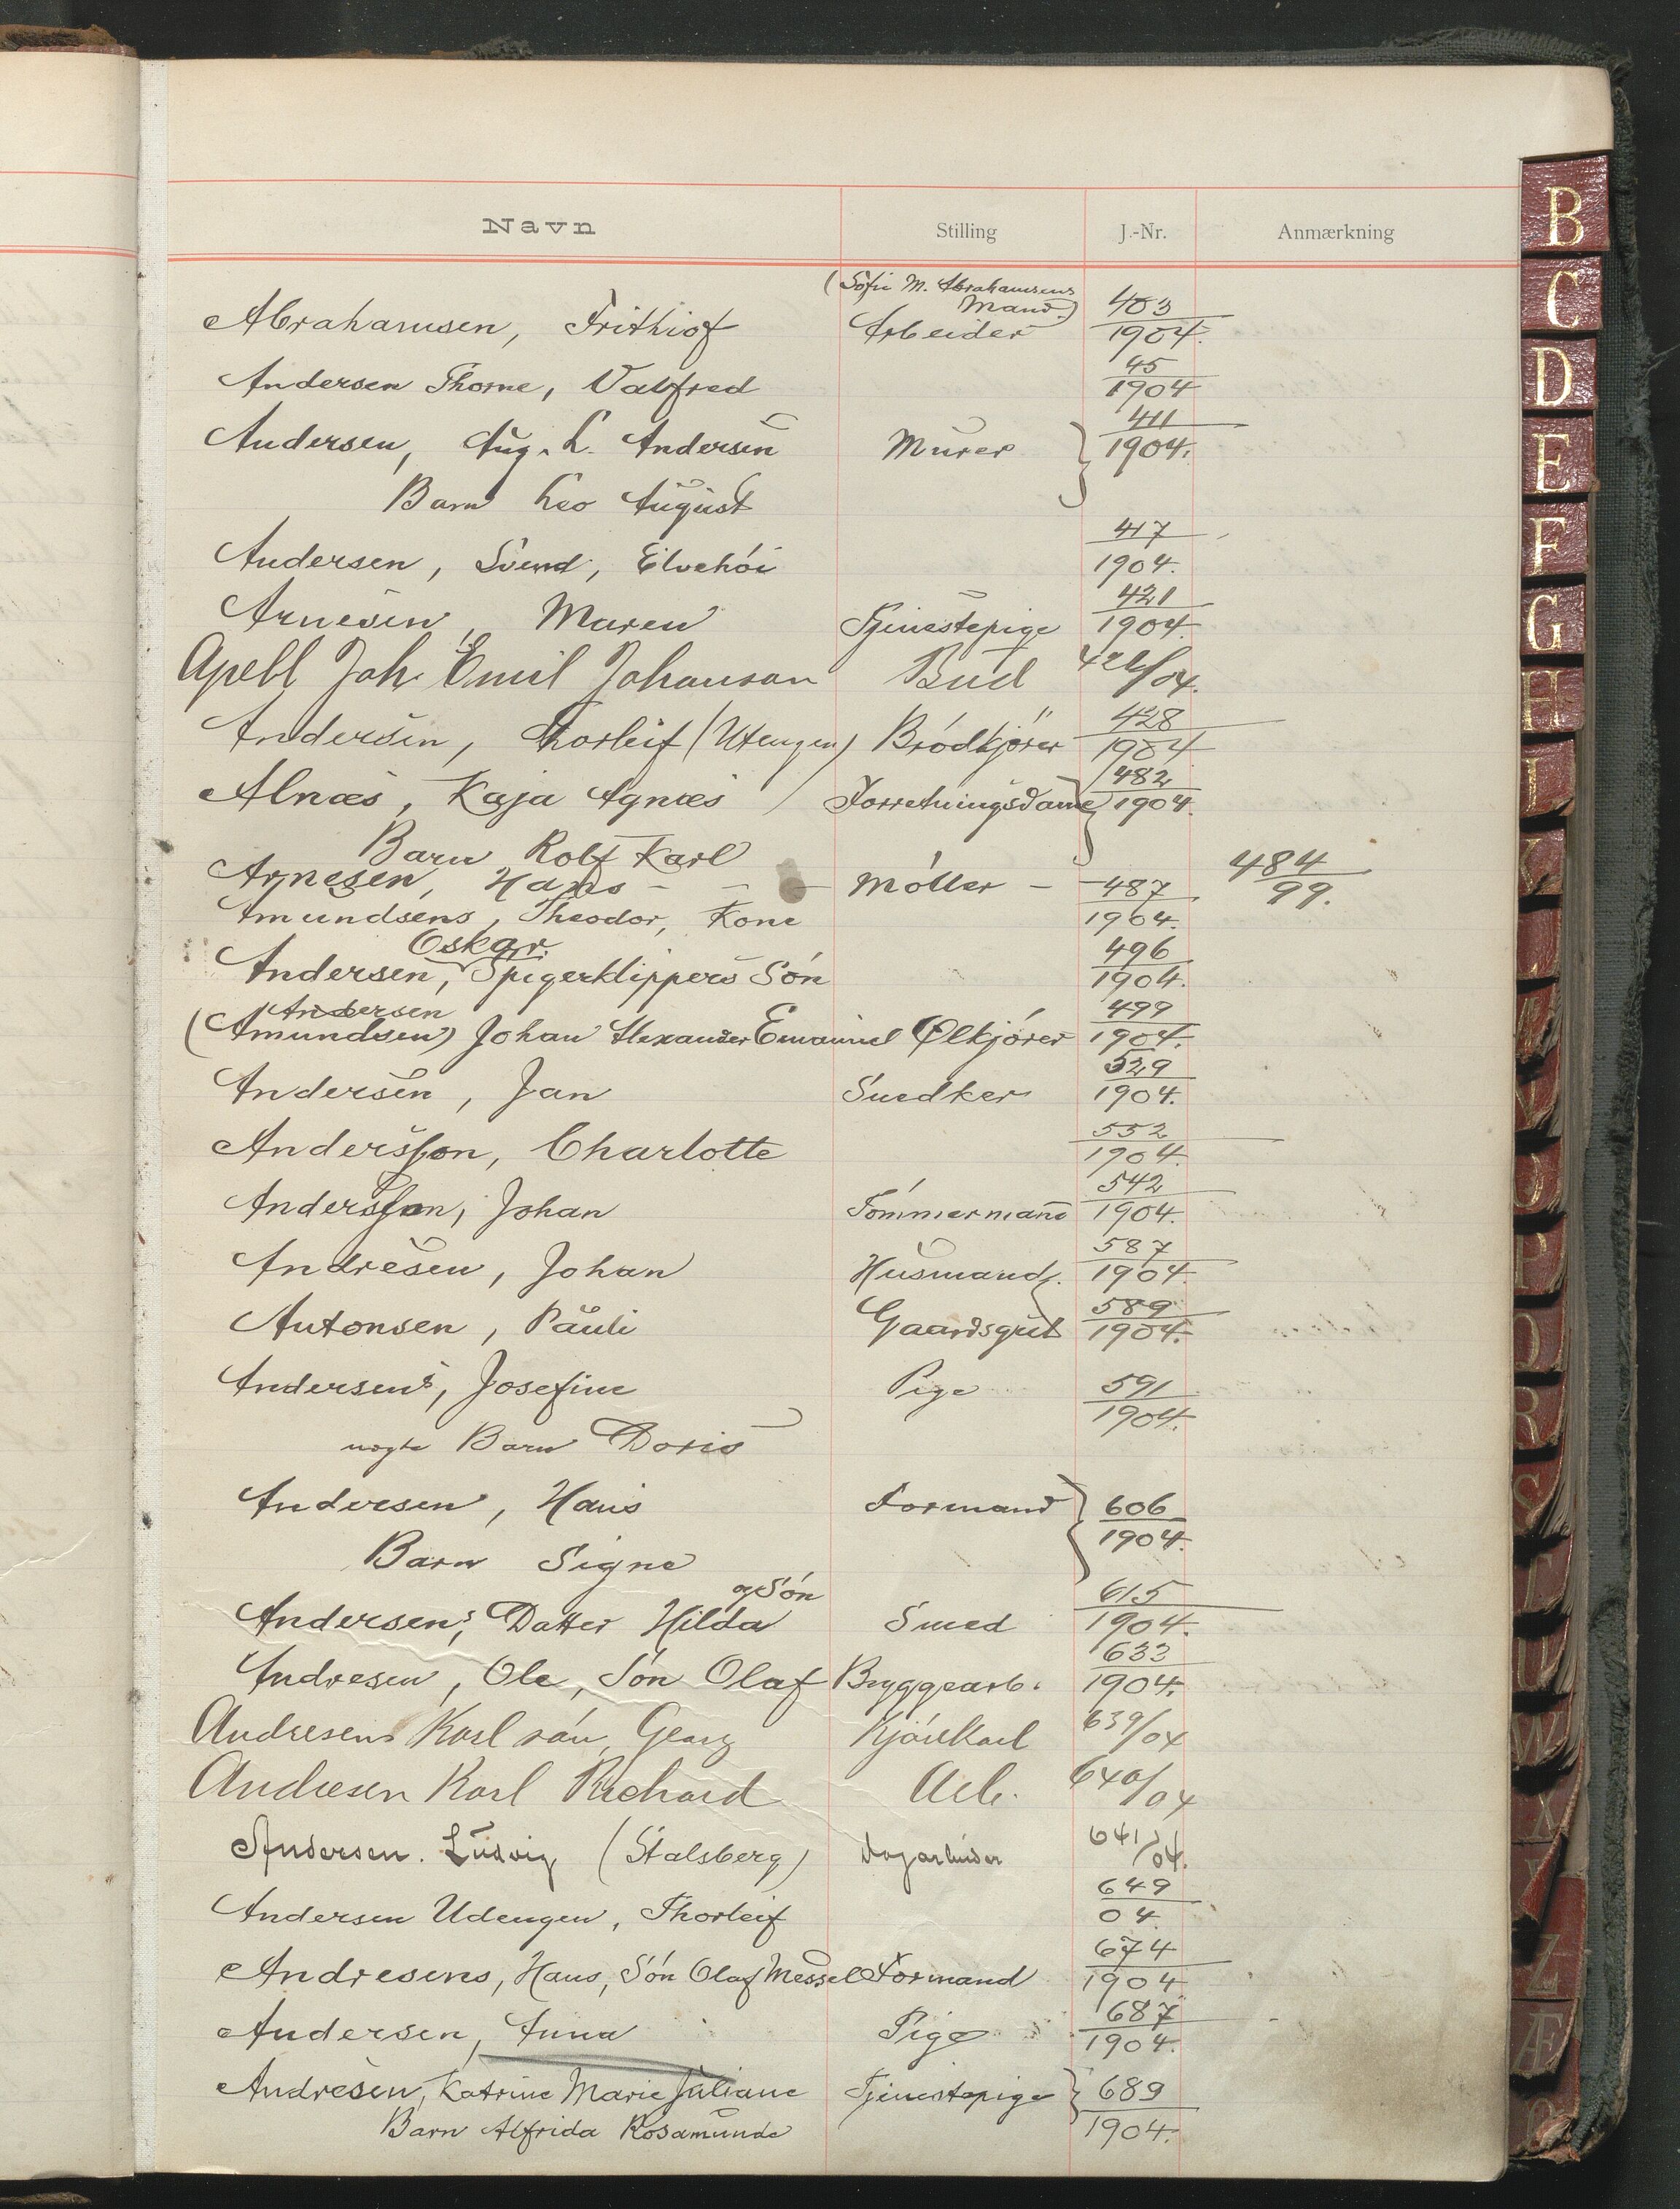 Navn Stilling J.-Nr. Anmærkning
(Sofie M. Abrahamsens
Mand)
Abrahamsen, Frithiof Arbeider 403/1904.
Andersen Thorne, Valfred 45/1904
Andersen, Aug. L. Andersen Murer 411/1904.
Barn Leo August
Andersen, Svend, Elvehöi 417/1904.
Arnesen, Maren Tjenestepige 421/1904.
Apell, Joh. Emil Johanson Bud /04.
Andersen, Thorleif (Utengen) Brödkjörer 428/1904
Alnæs, Kaja Agnæs Forretningsdame 482/1904.
Barn Rolf Karl
Arnesen, Hans - - - Möller - 484/99.
Amundsens, Theodor, Kone 487/1904.
Oskar.
Andersen, Spigerklippers Sön 496/1904.
Andersen
(Amundsen) Johan Alexander Emanuel Ølkjörer 499/1904.
Andersen, Jan Snedker 529/1904.
Andersson, Charlotte 532/1904.
Andersson, Johan Tömmermand 542/1904.
Andresen, Johan Husmand 587/1904
Antonsen, Pauli Gaardsgut 589/1904.
Andersens, Josefine Pige 591/1904.
uægte Barn Doris
Andersen, Hans Formand 606/1904.
Barn Signe
og Sön
Andersens, Datter Hilda Smed 615/1904.
Andresen, Ole, Sön Olaf Bryggearb. 633/1904.
Andresens Karl sön, Georg Kjörekarl 639/04
Andresen Karl Richard Arb. 640/04
Andersen. Ludvig (Stalsberg) Dagarbeider 641/04.
Andersen Udengen, Thorleif 649/04.
Andresens, Hans, Sön Olaf Messel Formand 674/1904
Andersen, Anna Pige 687/1904.
Andresen, Katrine Marie Juliane Tjenestepige 689/1904.
Barn Alfrida Rosamunde
B
C
D
E
F
G
H
I
K
L
M
N
O
P
Q
R
S
T
U
V
W
X
Y
Z
Æ
Ø